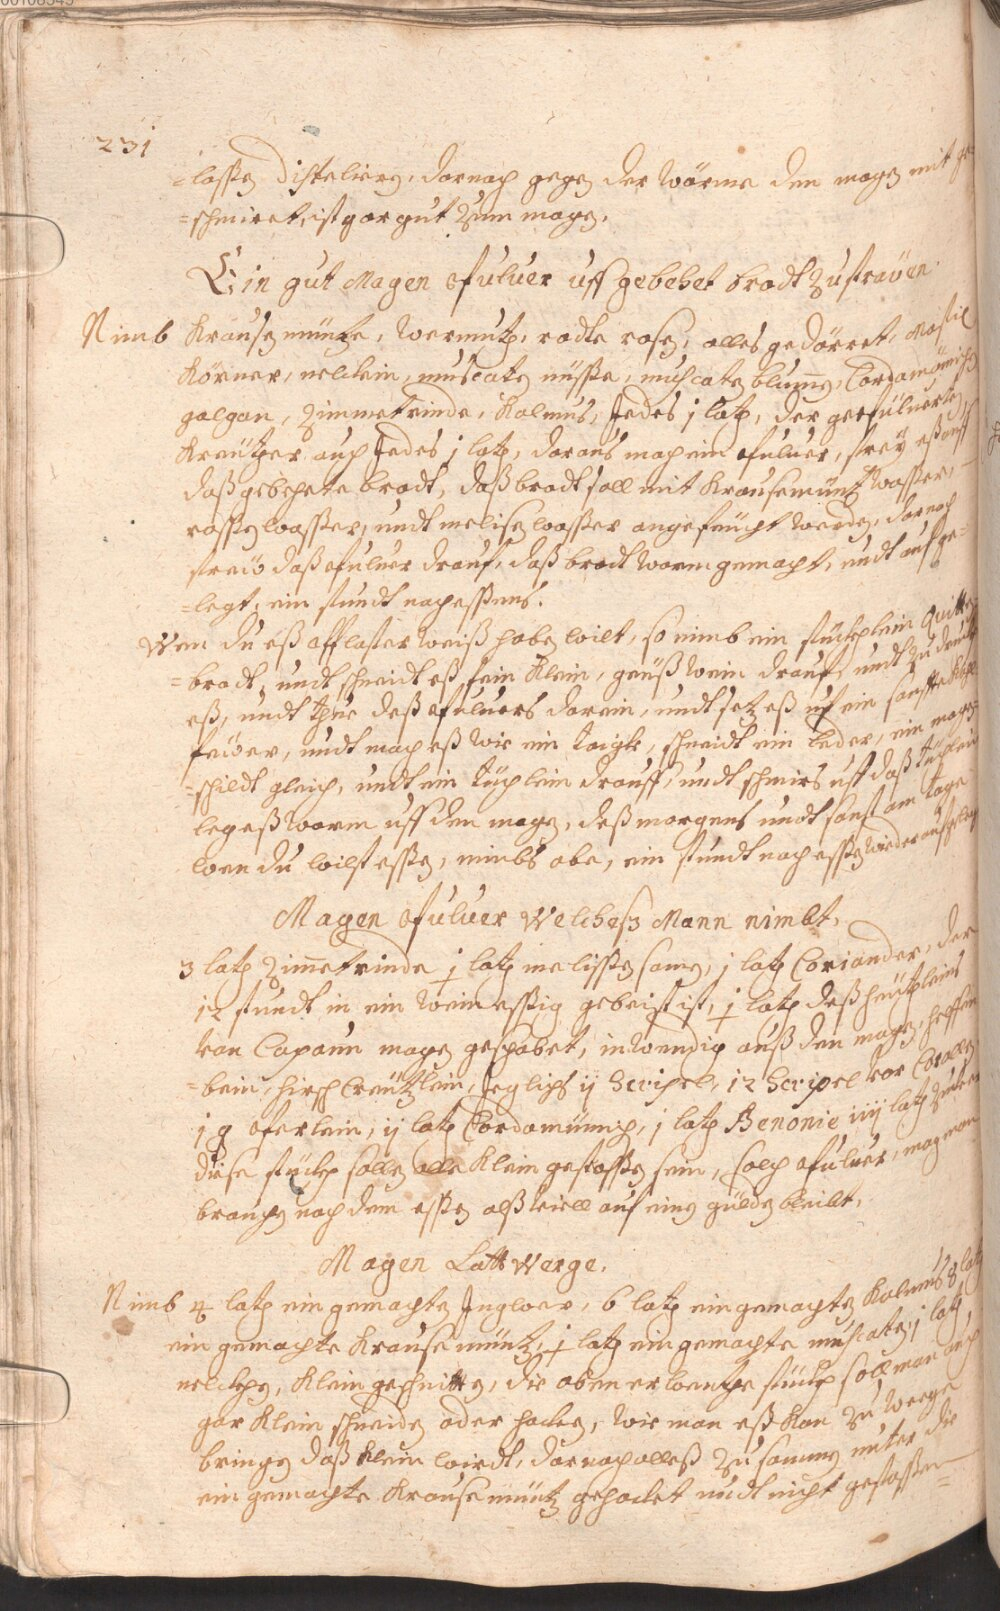 231
=lassen distelieren, darnach gegen der wärme den magen mit ge=
=schmiret, ist gar gut zum magen.
Ein gut Magen Pfuluer uff gebehet brodt zu sträöen
Nimb Krausemüntze, wermuth, rodte rosen, alles gedörret, Mastix
Körner, nelckein, muscaten nüsse, muscaten blumen, Cardamömichen
galgan, Zimmetrinde, Kalmus, Jedes j loth, der gepfuluerten
Kreütter auch Jedes j loth, daraus mach ein Pfuluer, strey eß auff
daß gebehete brodt, daß brodt soll mit Krausemüntz wasser,
rossen wasser, undt melisen wasser angefeücht werden, darnach
streüö daß Pfuluer drauf, daß brodt warm gemacht, undt aufge=
=legt, ein stundt nach essens.
Wen du eß pflaster weiß haben wilt, so nimb ein stücklein Quitten
=brodt, undt schneidt eß fein Klein, geüß wein drauf, undt zu drück
eß, undt thue deß Pfuluers darein, undt setz eß uf ein sanffte Kohl
feüöer, undt mach eß wie ein taigk, schneidt ein leder, ein magen
=schildt gleich, undt ein tüchlein drauff, undt schmirs uff daß tüchlein
leg eß warm uff den magen, deß morgens undt sonst am tage
wen du wilst essen, nimbs abe, ein stundt nach essen wieder aufgelegt
Magen Pfuluer Welcheß Mann nimbt.
3 loth Zimetrinde ½ loth melissen samen, j loth Coriander, der
12 stundt in ein weinessig gebeist ist, ½ loth deß heütleins
von Capaun magen geschabet, inwendig auß den magen, helffen
=bein, hirsch Creützlein, Jeglichs ij Scripel, 12 Scripel ror Corallen
j q Perlein, ij loth Cordamümich, j loth Benonie iiij loth Zucker
diese stück sollen alle Klein gestossen sein, solch Pfuluer, mag man
brauchen nach dem essen alß viell auf einen gülden bleibt.
Magen Lattwerge.
Nimb 4 loth ein gemachten Ingwer, 6 loth ein gemachten Kalmus 8 loth
ein gemachte Krausemüntz, ½ loth ein gemachte muscaten j loth
nelcken, Klein geschnitten, die oben erwente stück soll man auch
gar Klein schneiden oder hacken, wie man eß kan zu wege
bringen daß klein wirdt, darnach alleß zusamen unter die
ein gemachte Krausemüntz gehacket undt nicht gestossen=